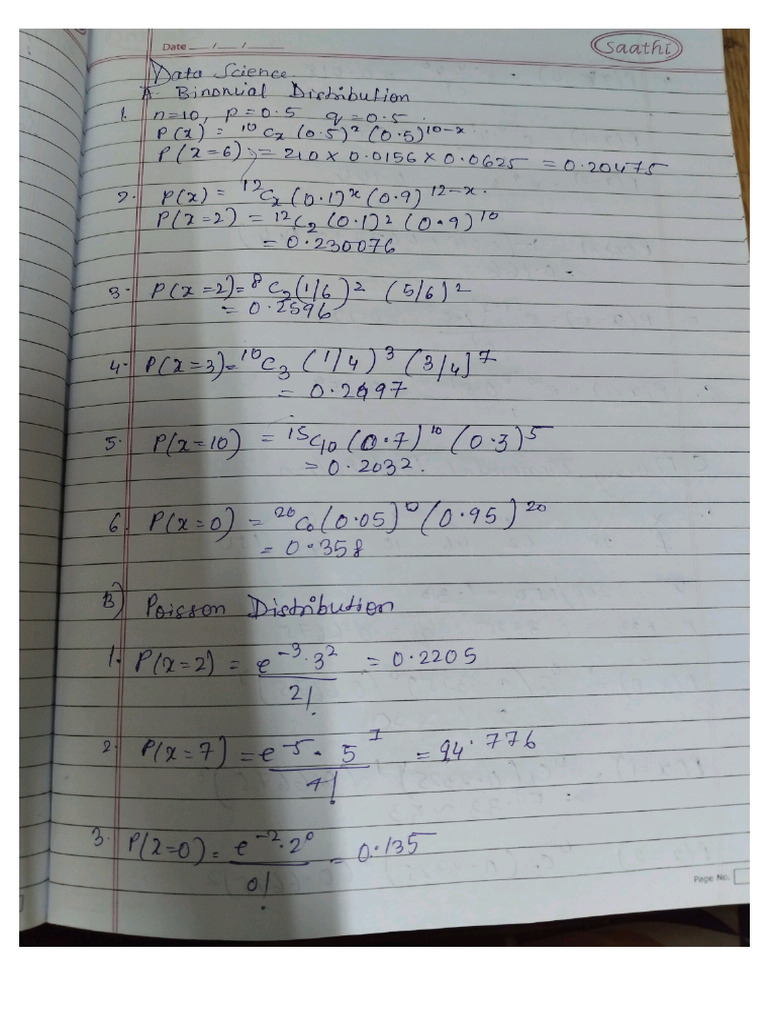 Date __/__/____
Saathi
Data Science
A. Binomial Distribution
1. n=10, p=0.5 q=0.5.
P(x) = ¹⁰Cx (0.5)ˣ (0.5)¹⁰⁻ˣ
P(x=6) = 210 × 0.0156 × 0.0625 = 0.20475
2. P(x) = ¹²Cx (0.1)ˣ (0.9)¹²⁻ˣ.
P(x=2) = ¹²C₂ (0.1)² (0.9)¹⁰
= 0.230076
3. P(x=2) = ⁸C₂ (1/6)² (5/6)²
= 0.2596
4. P(x=3) = ¹⁰C₃ (1/4)³ (3/4]⁷
= 0.2497
5. P(x=10) = ¹⁵C₁₀ (0.7)¹⁰ (0.3)⁵
= 0.2032.
6. P(x=0) = ²⁰C₀ (0.05)⁰ (0.95)²⁰
= 0.358
B) Poisson Distribution
1. P(x=2) = e⁻³·3² = 0.2205
2!
2. P(x=7) = e⁻⁵·5⁷ = 94.776
7!
3. P(x=0) = e⁻²·2⁰ = 0.135
0!
Page No.